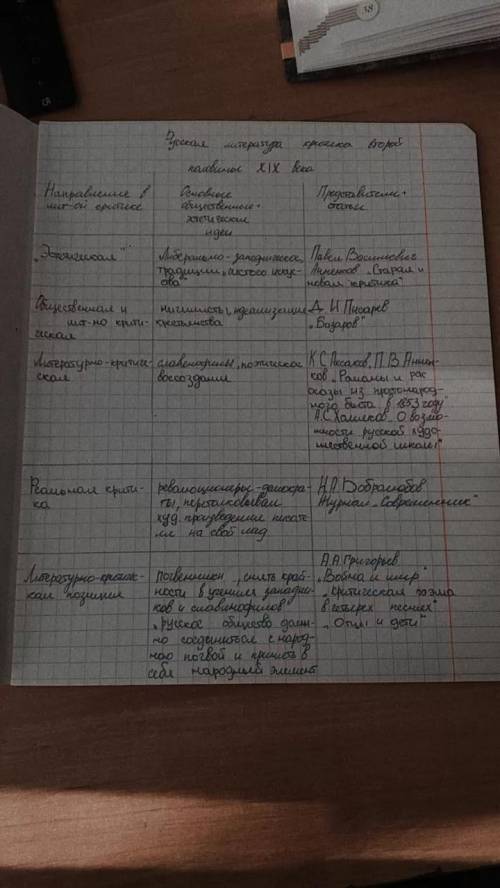 Русская литература критика второй
половины XIX века
Направление в
лит-ой критике
Основное
общественно-
эстетические
идеи
Представители
статьи
„Эстетическая"
Либерально-западнические
традиции, „чистого искус-
ства"
Павел Васильевич
Анненков „Старая и
новая критика"
Общественная и
лит-но крити-
ческая
нигилисты, идеализация
крестьянства
Д. И Писарев
„Базаров"
Литературно-критиче-
ская
славянофилы, поэтическое
воссоздание
К.С. Аксаков, П.В. Аннен-
ков „Романы и рас
сказы из простонарод-
ного быта в 1853 году"
А.С. Хомяков „О возмо-
жности русской худо-
жественной школы"
Реальная крити-
ка
революционеры-демокра-
ты, перетолковывали
худ. произведения писате
ля на свой лад
Н.А. Добролюбов
Журнал „Современник"
Литературно-критичес-
кая позиция
почвенники, снять край-
ности в учениях западни-
ков и славянофилов
„русское общество долж-
но соединиться с народ-
ною почвой и принять в
себя народный элемент
А.А. Григорьев
„Война и мир"
критическая поэма
в четырех песнях"
„Отцы и дети"